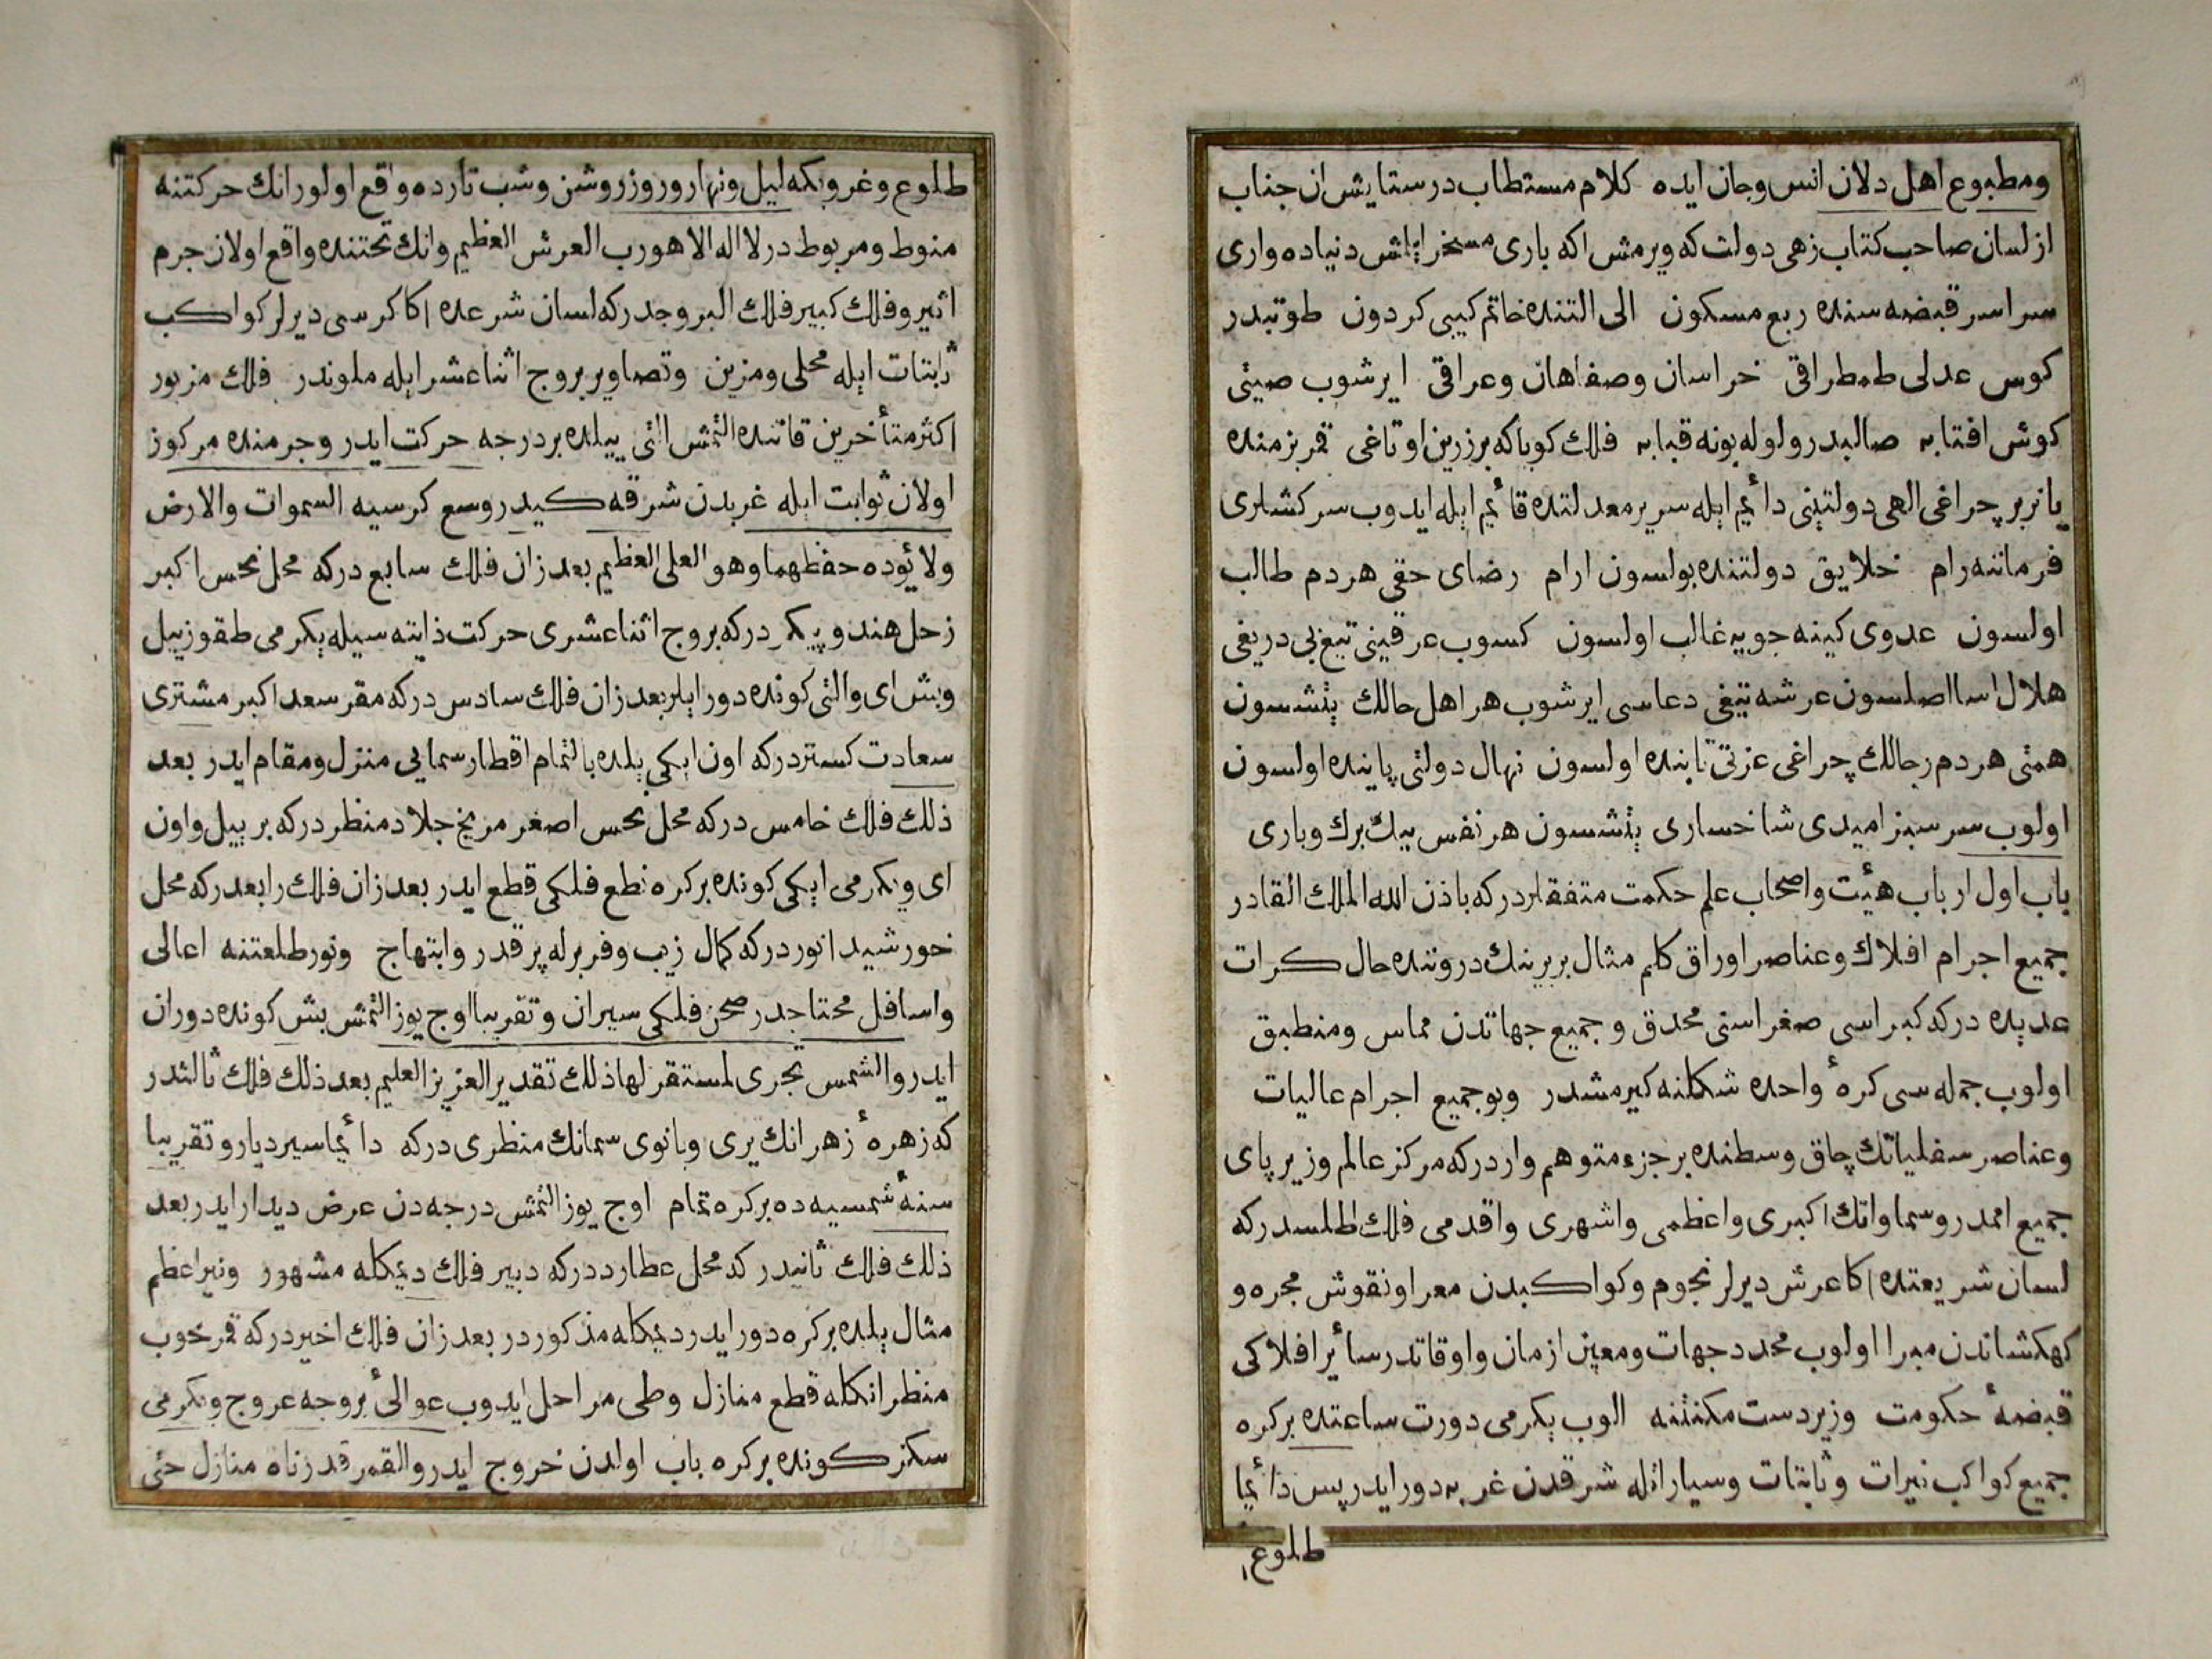 ومطبوع اهل دلان انس وجان ايده كلام مستطاب در ستايش ان جناب
از لسان صاحب كتاب زهى دولت كه ويرمش اكه بارى مسخر دنياده وارى
سراسر قبضه سنده ربع مسكون الى التنده خاتم كيبى كردون طوتبدر
كوس عدلى طمطراقى خراسان وصفاهان وعراقى ايرشوب صيتى
كوش افتابه صالبدر ولوله بونه قبابه فلك كويا كه بر زرين اوتاغى قمر بزمنده
يانر بر چراغى الهى دولتينى دائيم ايله سرير معدلتده قائيم ايله ايدوب سركشلرى
فرماننه رام خلايق دولتنده بولسون ارام رضاى حقى هر دم طالب
اولسون عدوى كينه جويه غالب اولسون كسوب عرقينى تيغ بى دريغى
هلال اسا اصلسون عرشه تيغى دعاسى ايرشوب هر اهل حالك يتشسون
همتى هر دم رجالك چراغى عزتى تابنده اولسون نهال دولتى پاينده اولسون
اولوب سر سبز اميدى شاخسارى يتشسون هر نفس بيك برك وبارى
باب اول ارباب هيئت واصحاب علم حكمت متفقلردركه باذن الله الملك القادر
جميع اجرام افلاك وعناصر اوراق كلم مثال بربرينك دروننده حال كرات
عديده دركه كبراسى صغراسنى محدق و جميع جهاتدن مماس ومنطبق
اولوب جمله سى كرهٔ واحده شكلنه كيرمشدر وبو جميع اجرام عاليات
وعناصر سفلياتك چاق وسطنده بر جزء متوهم واردركه مركز عالم وزير پاى
جميع اممدر وسماواتك اكبرى واعظمى واشهرى واقدمى فلك اطلسدركه
لسان شريعتده اكا عرش ديرلر نجوم وكواكبدن معرا ونقوش مجره و
كهكشاندن مبرا اولوب محدد جهات ومعين ازمان واوقاتدر سائر افلاكى
قبضهٔ حكومت وزيردست مكنتنه الوب يكرمى دورت ساعتده بر كره
جميع كواكب نيرات وثابتات وسياراتله شرقدن غربه دور ايدر پس دائما
طلوع
طلوع وغروبكه ليل ونهار وروز روشن وشب تارده واقع اولور انك حركتنه
منوط ومربوطدر لا اله الا هو رب العرش العظيم وانك تحتنده واقع اولان جرم
اثير وفلك كبير فلك البروجدركه لسان شرعده اكا كرسى ديرلر كواكب
ثابتات ايله محلى ومزين وتصاوير بروج اثناعشر ايله ملوندر فلك مزبور
اكثر متأخرين قاتنده التمش التى ييلده بر درجه حركت ايدر وجرمنده مركوز
اولان ثوابت ايله غربدن شرقه كيدر وسع كرسيه السموات والارض
ولا يؤده حفظهما وهو العلى العظيم بعد زان فلك سابع دركه محل نحس اكبر
زحل هندو پيكر دركه بروج اثناعشرى حركت ذاتيه سيله يكرمى طقوز ييل
وبش اى والتى كونده دور ايلر بعد زان فلك سادس دركه مقر سعد اكبر مشترى
سعادت كستردركه اون ايكى يلده بالتمام اقطار سمايى منزل ومقام ايدر بعد
ذلك فلك خامس دركه محل نحس اصغر مريخ جلاد منظردركه بر ييل واون
اى ويكرمى ايكى كونده بر كره نطع فلكى قطع ايدر بعد زان فلك رابعدركه محل
خورشيد انوردركه كمال زيب وفر برله پر قدر وابتهاج ونور طلعتنه اعالى
واسافل محتاجدر صحن فلكى سيران وتقريبا اوج يوز التمش بش كونده دوران
ايدر والشمس تجرى لمستقر لها ذلك تقدير العزيز العليم بعد ذلك فلك ثالثدر
كه زهرهٔ زهرانك يرى وبانوى سمانك منظرى دركه دائما سير ديار وتقريبا
سنهٔ شمسيه ده بر كره تمام اوج يوز التمش درجه دن عرض ديدار ايدر بعد
ذلك فلك ثانيدر كه محل عطارددركه دبير فلك ديمكله مشهور ونير اعظم
مثال يلده بر كره دور ايدر ديمكله مذكوردر بعد زان فلك اخيردركه قمر خوب
منظر انكله قطع منازل وطى مراحل ايدوب عوالئ بروجه عروج ويكرمى
سكز كونده بر كره باب اولدن خروج ايدر والقمر قدرناه منازل حتى